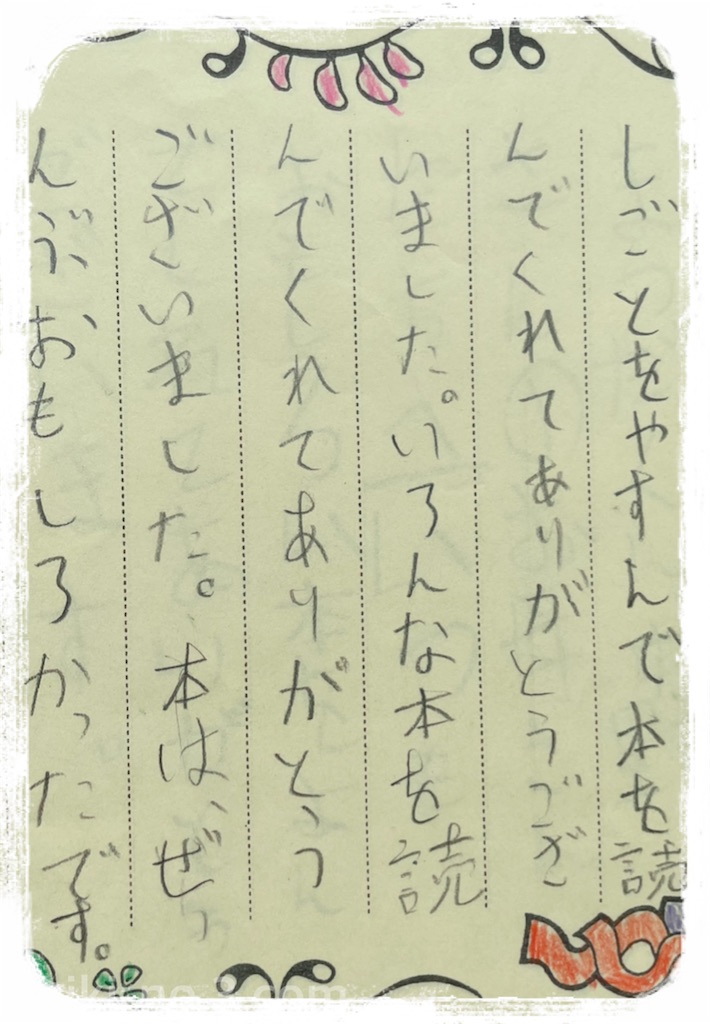 しごとをやすんで本を読
んでくれてありがとうござ
いました。いろんな本を読
んでくれてありがとう
ございました。本は、ぜ
んぶ、おもしろかったです。